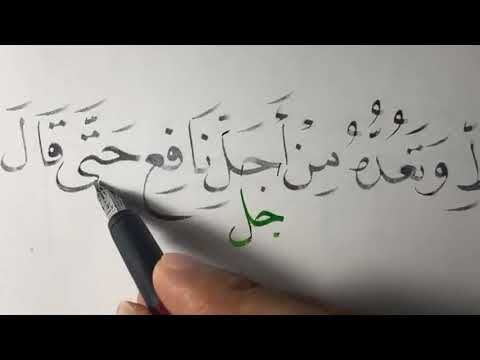 وَتَعُدُّهُ مِنْ أَجَلِّ نَافِعٍ حَتَّى قَالَ
جل